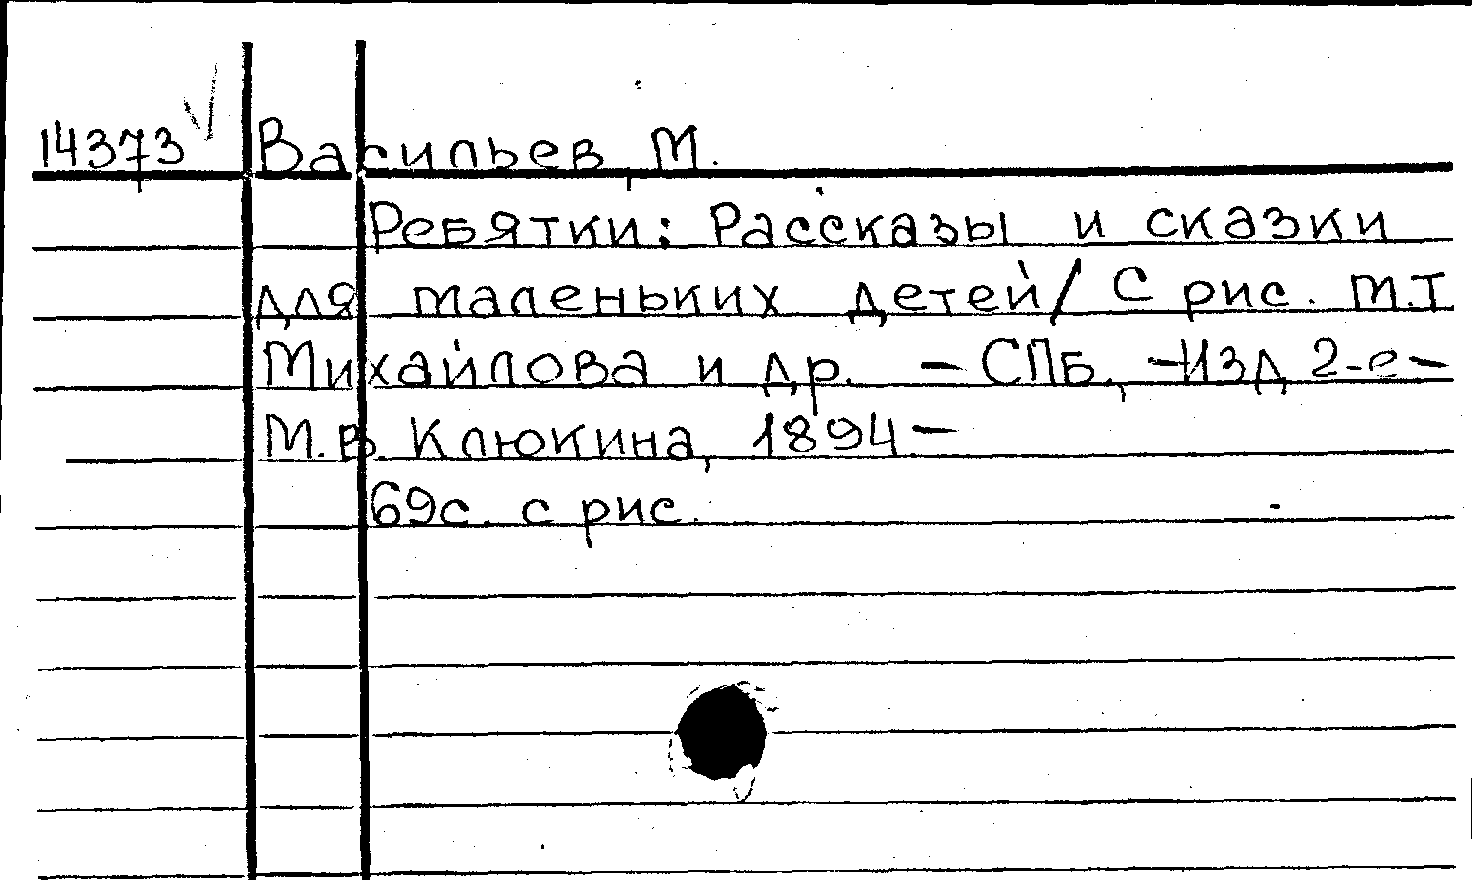 14373 Васильев, М.
Ребятки: Рассказы и сказки
для маленьких детей/ С рис. М.Т
Михайлова и др. – СПб., – Изд 2-е –
М.В. Клюкина, 1894 –
69с. с рис.